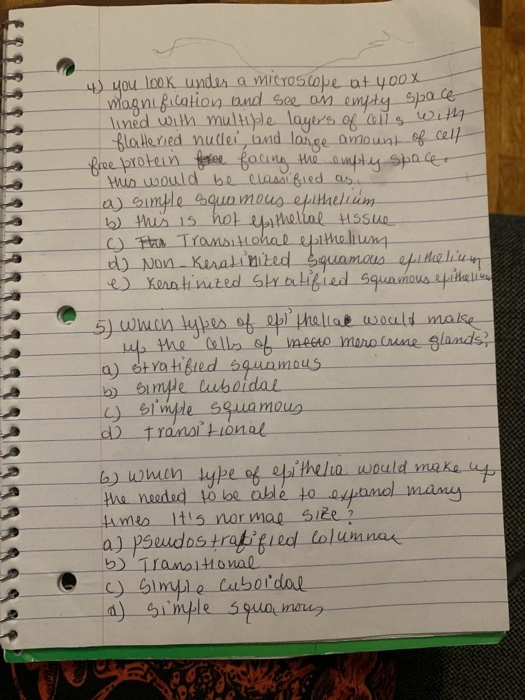 4) you look under a microscope at 400x
magnification and see an empty space
lined with multiple layers of cells with
flattened nuclei, and large amount of cell
free protein free facing the empty space.
this would be classified as.
a) simple squamous epithelium
b) this is not epithelial tissue
c) This Transitional epithelium
d) Non-Keratinized squamous epithelium
e) Keratinized Stratified squamous epithelium
5) which types of epitheliae would make
up the cells of mero merocrine glands?
a) stratified squamous
b) simple cuboidal
c) simple squamous
d) transitional
6) which type of epithelia would make up
the needed to be able to expand many
times it's normal size?
a) pseudostratified columnar
b) Transitional
c) simple cuboidal
d) simple squamous